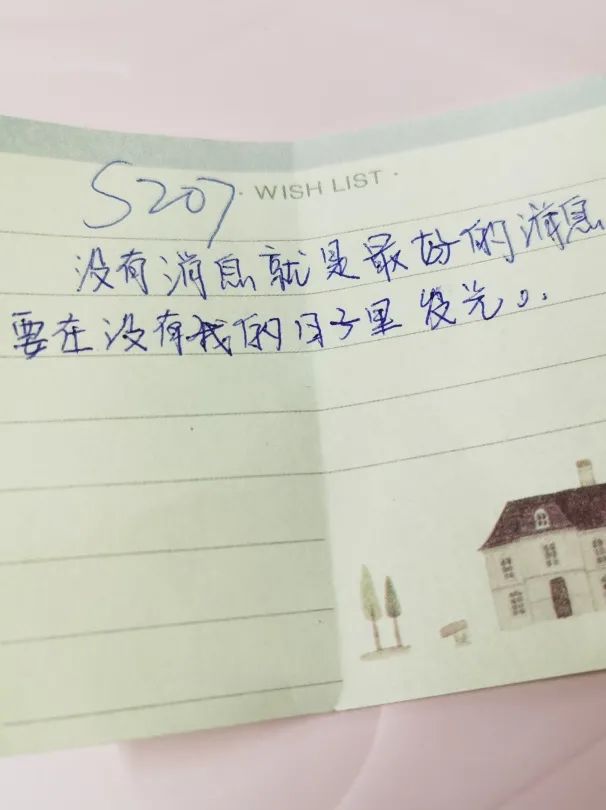 S207
· WISH LIST ·
没有消息就是最好的消息
要在没有我的日子里发光。